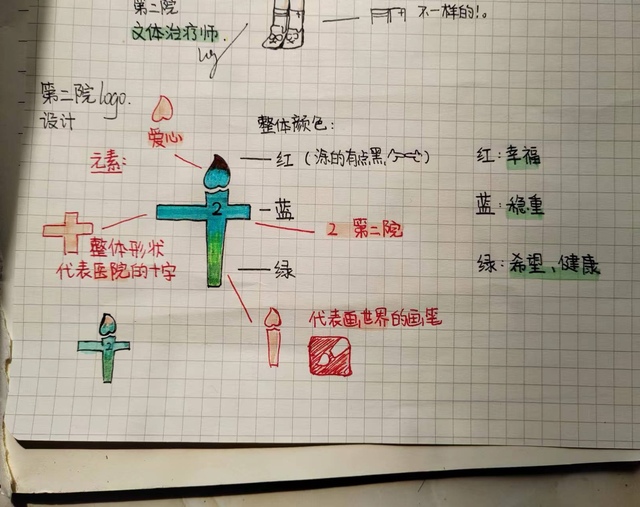 第二院
文体治疗师.
不一样的!。
第二院logo.
设计
爱心
整体颜色:
元素:
红(涂的有点黑)
红:幸福
2
蓝
2 第二院
蓝:稳重
整体形状
代表医院的十字
绿
绿:希望、健康
代表画世界的画笔
2